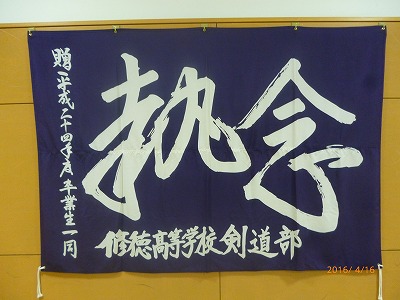 執念
修徳高等学校剣道部
贈 平成二十四年度卒業生一同
2016/ 4/16